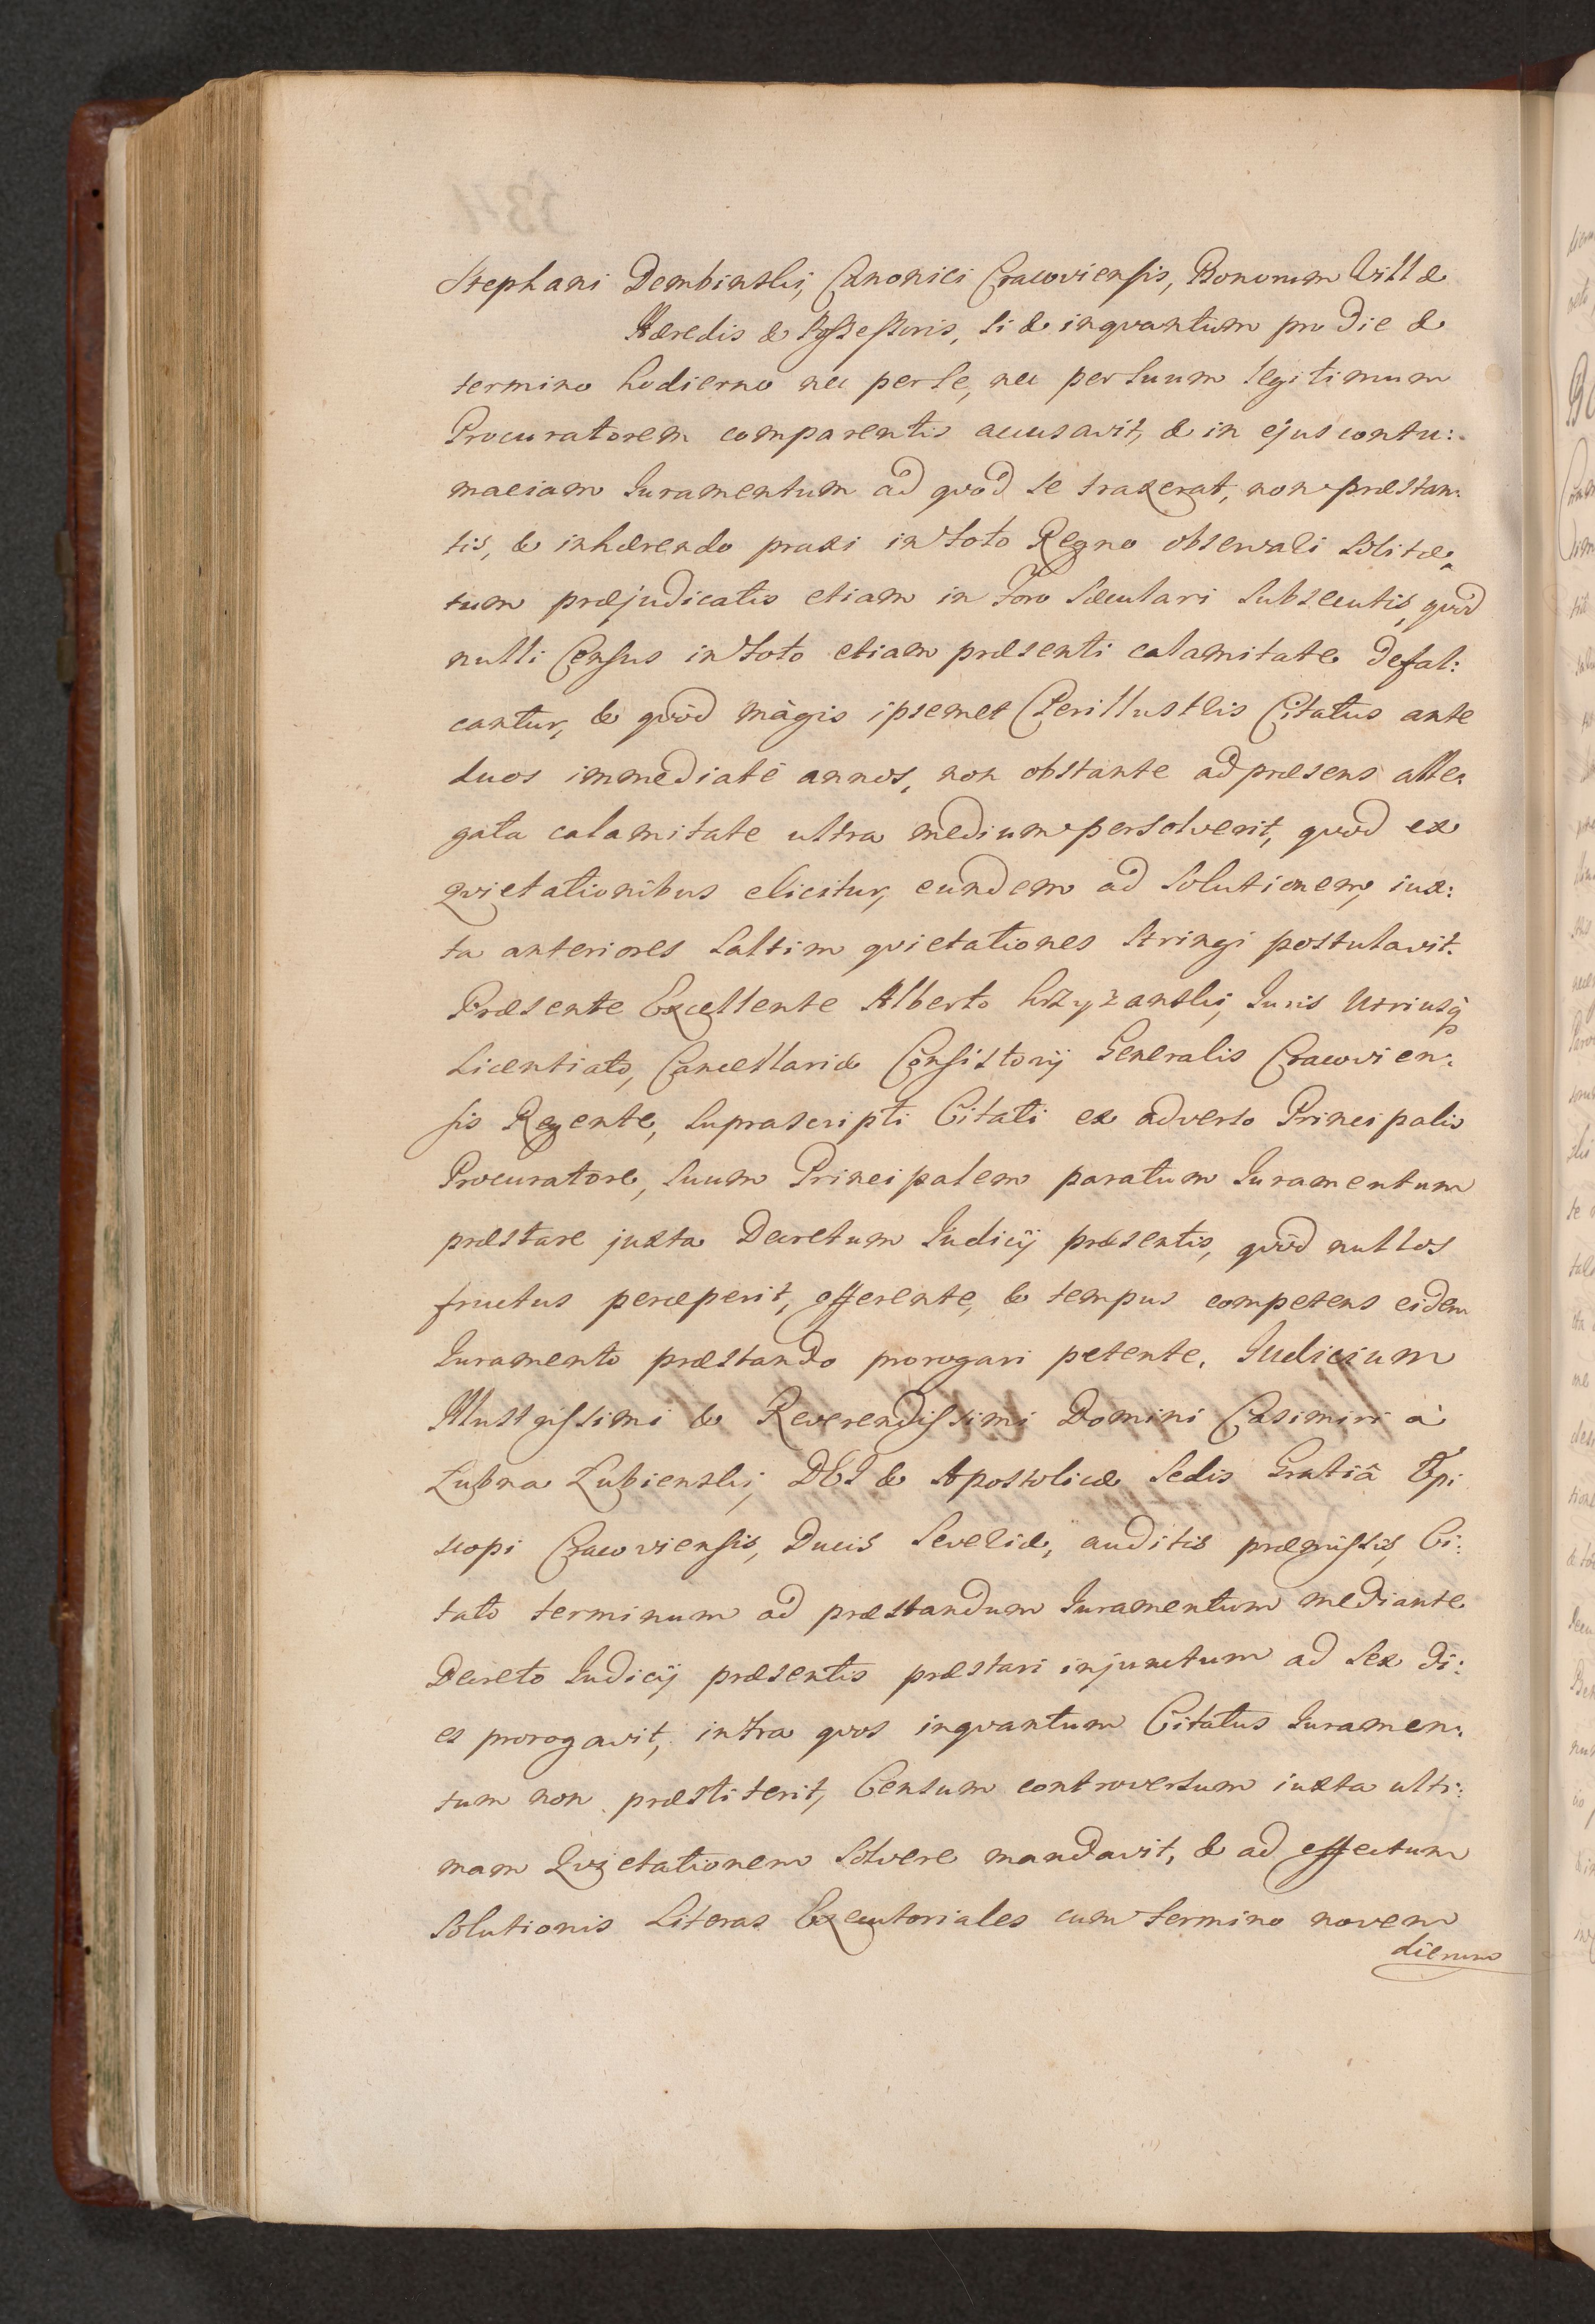 Stephani Dembinskij, Canonici Cracoviensis, Bonorum Villæ
Hæredis & Possessoris, si & inqvantum pro die &
termino hodierno nec per se, nec per suum legitimum
Procuratorem comparentis accusavit, & in ejus contu:
maciam Iuramentum ad qvod se traxerat, non præstan:
tis, & inhærendo praxi in toto Regno observari solitæ,
tum præjudicatis etiam in Foro sæculari subsecutis, qvod
nulli Census in toto etiam præsenti calamitate defal:
cantur, & qvòd màgis ipsemet Perillustris Citatus ante
duos immediatè annos, non obstante ad præsens alle:
gata calamitate ultra medium persolverit, qvod ex
qvietationibus elicitur, eundem ad solutionem, iux:
ta anteriores saltim qvietationes stringi postulavit.
Præsente Excellente Alberto Krzyżanskij, Iuris Utriusq̃
Licentiato, Cancellariæ Consistorij Generalis Cracovien:
sis Regente, suprascripti Citati ex adverso Principalis
Procuratore, suum Principalem paratum Iuramentum
præstare juxta Decretum Iudicij præsentis, qvòd nullos
fructus perceperit, offerente, & tempus competens eidem
Iuramento præstando prorogari petente. Iudicium
Illustrissimi & Reverendissimi Domini Casimiri à
Łubna Łubienskij, DEI & Apostolicæ Sedis Gratiâ Epi
scopi Cracoviensis, Ducis Severiæ, auditis præmissis, Ci:
tato terminum ad præstandum Iuramentum mediante
Decreto Iudicij præsentis præstari injunctum ad sex di:
es prorogavit, intra qvos inqvantum Citatus Iuramen:
tum non præstiterit, Censum controversum iuxta ulti:
mam Qvietationem solvere mandavit, & ad effectum
solutionis Literas Executoriales cum termino novem
dierum